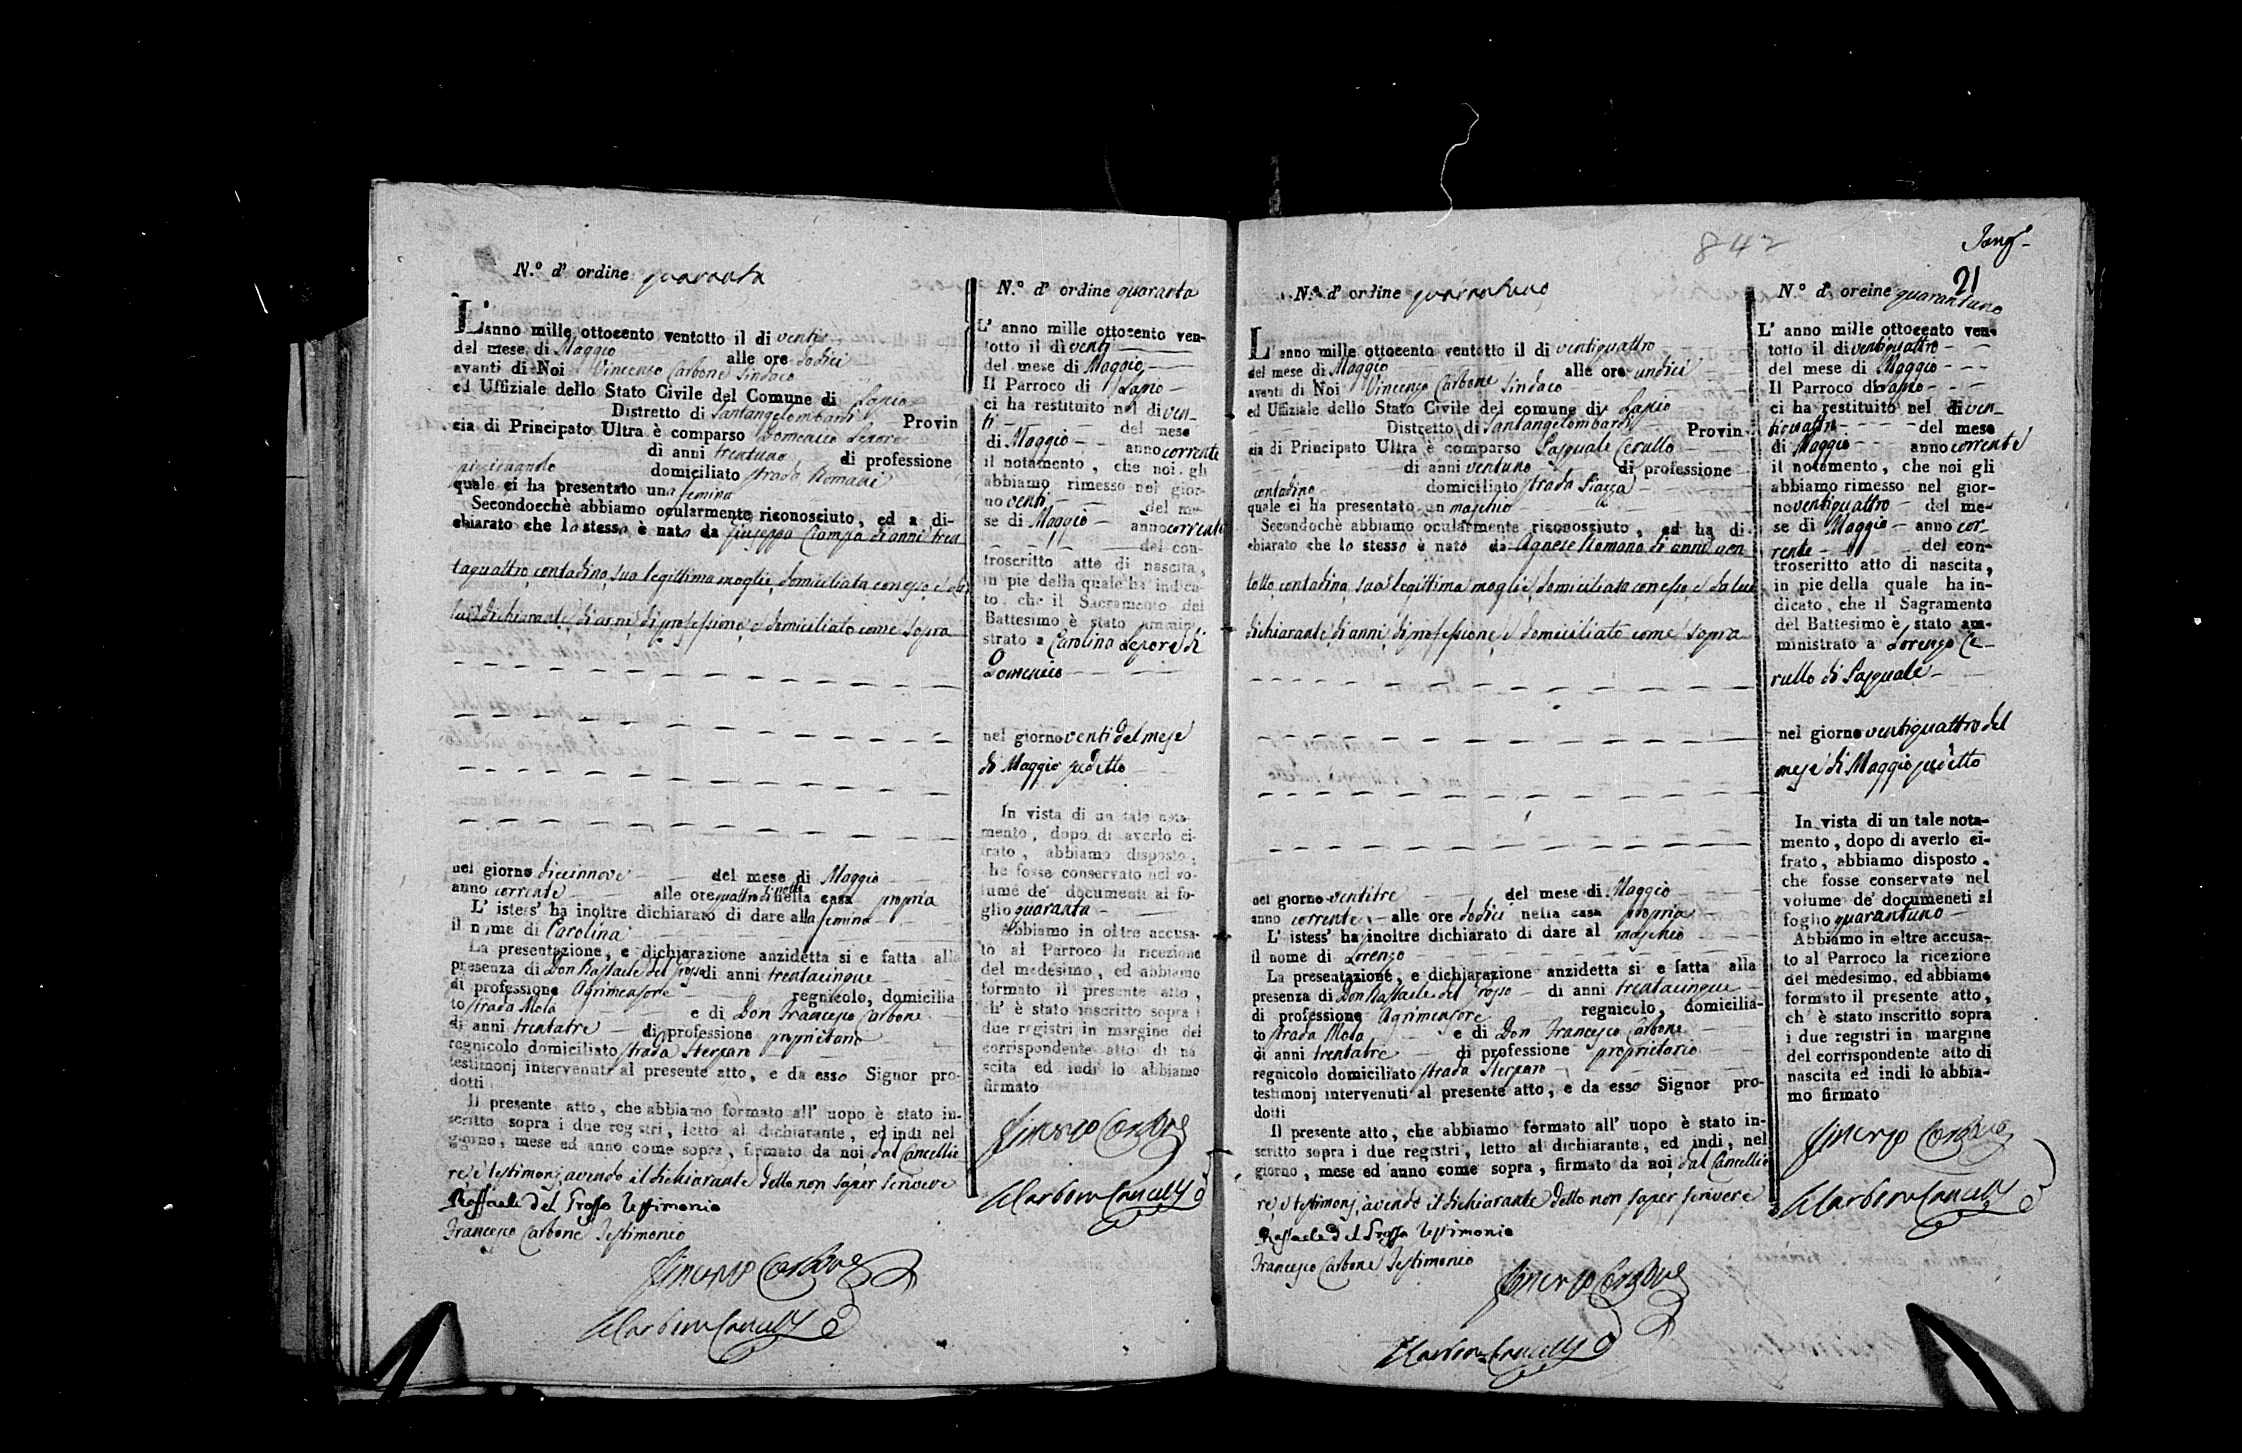 N.º d' ordine quaranta
L'anno mille ottocento ventotto il di venti
del mese di Maggio alle ore dodici
avanti di Noi Vincenzo Carbone Sindaco
ed Uffiziale dello Stato Civile del Comune di Lapio
Distretto di Santangelombardi Provin
cia di Principato Ultra è comparso Domenico Lepore
di anni trentuno di professione
domiciliato strada Romani
quale ci ha presentato una femina
Secondocchè abbiamo ocularmente riconosciuto, ed a di-
chiarato che lo stesso è nato da Giuseppa Ciampa di anni tren
taquattro contadina, sua legittima moglie, domiciliata con esso, e da
lui dichiarante, di anni, di professione, e domiciliato come sopra
nel giorno diecinnove del mese di Maggio
anno corrente alle ore quattro di notte nella casa propria
L' istess' ha inoltre dichiarato di dare alla femina
il nome di Carolina
La presentazione, e dichiarazione anzidetta si e fatta alla
presenza di Don Raffaele del Grosso di anni trentacinque
di professione Agrimensore regnicolo, domicilia
to strada Mola e di Don Francesco Carbone
di anni trentatre di professione proprietario
regnicolo domiciliato strada
testimonj intervenuti al presente atto, e da esso Signor pro-
dotti
Il presente atto, che abbiamo formato all' uopo è stato in-
scritto sopra i due registri, letto al dichiarante, ed indi nel
giorno, mese ed anno come sopra, firmato da noi dal Cancellie
re, e testimonj, avendo il dichiarante detto non saper scrivere
Raffaele del Grosso Testimonio
Francesco Carbone Testimonio
Vincenzo Carbone
N.º d' ordine quaranta
L' anno mille ottocento ven-
totto il di venti
del mese di Maggio
Il Parroco di Lapio
ci ha restituito nel di ven-
ti del mese
di Maggio anno corrente
il notamento, che noi gli
abbiamo rimesso nel gior-
no venti del me-
se di Maggio anno corrente
del con-
troscritto atto di nascita,
in pie della quale ha indica-
to, che il Sacramento del
Battesimo è stato ammini
strato a Carolina Lepore di
Domenico
nel giorno venti del mese
di Maggio sudetto
In vista di un tale nota-
mento, dopo di averlo ci-
frato, abbiamo disposto,
che fosse conservato nel vo-
lume de' documenti al fo-
glio quaranta
Abbiamo in oltre accusa-
to al Parroco la ricezione
del medesimo, ed abbiamo
formato il presente atto,
ch' è stato inscritto sopra i
due registri in margine del
corrispondente atto di na
scita ed indi lo abbiamo
firmato
Vincenzo Carbone
842
21
N.º d' ordine quarantuno
L'anno mille ottocento ventotto il di ventiquattro
del mese di Maggio alle ore undici
avanti di Noi Vincenzo Carbone Sindaco
ed Uffiziale dello Stato Civile del comune di Lapio
Distretto di Santangelombardi Provin-
cia di Principato Ultra è comparso Pasquale Cerullo
di anni ventuno di professione
contadino domiciliato strada Piazza
quale ci ha presentato un maschio
Secondochè abbiamo ocularmente riconosciuto, ed ha di-
chiarato che lo stesso è nato da Agnese Romano di anni ven
totto, contadina, sua legittima moglie, domiciliata con esso, e da lui
dichiarante, di anni, di professione, e domiciliato come sopra
nel giorno ventitre del mese di Maggio
anno corrente alle ore dodici nella casa propria
L' istess' ha inoltre dichiarato di dare al maschio
il nome di Lorenzo
La presentazione, e dichiarazione anzidetta si e fatta alla
presenza di Don Raffaele del Grosso di anni trentacinque
di professione Agrimensore regnicolo, domicilia-
to strada Mola e di Don Francesco Carbone
di anni trentatre di professione proprietario
regnicolo domiciliato strada
testimonj intervenuti al presente atto, e da esso Signor pro-
dotti
Il presente atto, che abbiamo formato all' uopo è stato in-
scritto sopra i due registri, letto al dichiarante, ed indi, nel
giorno, mese ed anno come sopra, firmato da noi dal Cancellie
re, e testimonj, avendo il dichiarante detto non saper scrivere
Raffaele del Grosso Testimonio
Francesco Carbone Testimonio
Vincenzo Carbone
N.º d' oreine quarantuno
L' anno mille ottocento ven-
totto il di ventiquattro
del mese di Maggio
Il Parroco di Lapio
ci ha restituito nel di ven-
tiquattro del mese
di Maggio anno corrente
il notamento, che noi gli
abbiamo rimesso nel gior-
no ventiquattro del me-
se di Maggio anno cor-
rente del con-
troscritto atto di nascita,
in pie della quale ha in-
dicato, che il Sagramento
del Battesimo è stato am-
ministrato a Lorenzo Ce-
rullo di Pasquale
nel giorno ventiquattro del
mese di Maggio sudetto
In vista di un tale nota-
mento, dopo di averlo ci-
frato, abbiamo disposto,
che fosse conservato nel
volume de' documeneti al
foglio quarantuno
Abbiamo in oltre accusa-
to al Parroco la ricezione
del medesimo, ed abbiamo
formato il presente atto,
ch' è stato inscritto sopra
i due registri in margine
del corrispondente atto di
nascita ed indi lo abbia-
mo firmato
Vincenzo Carbone